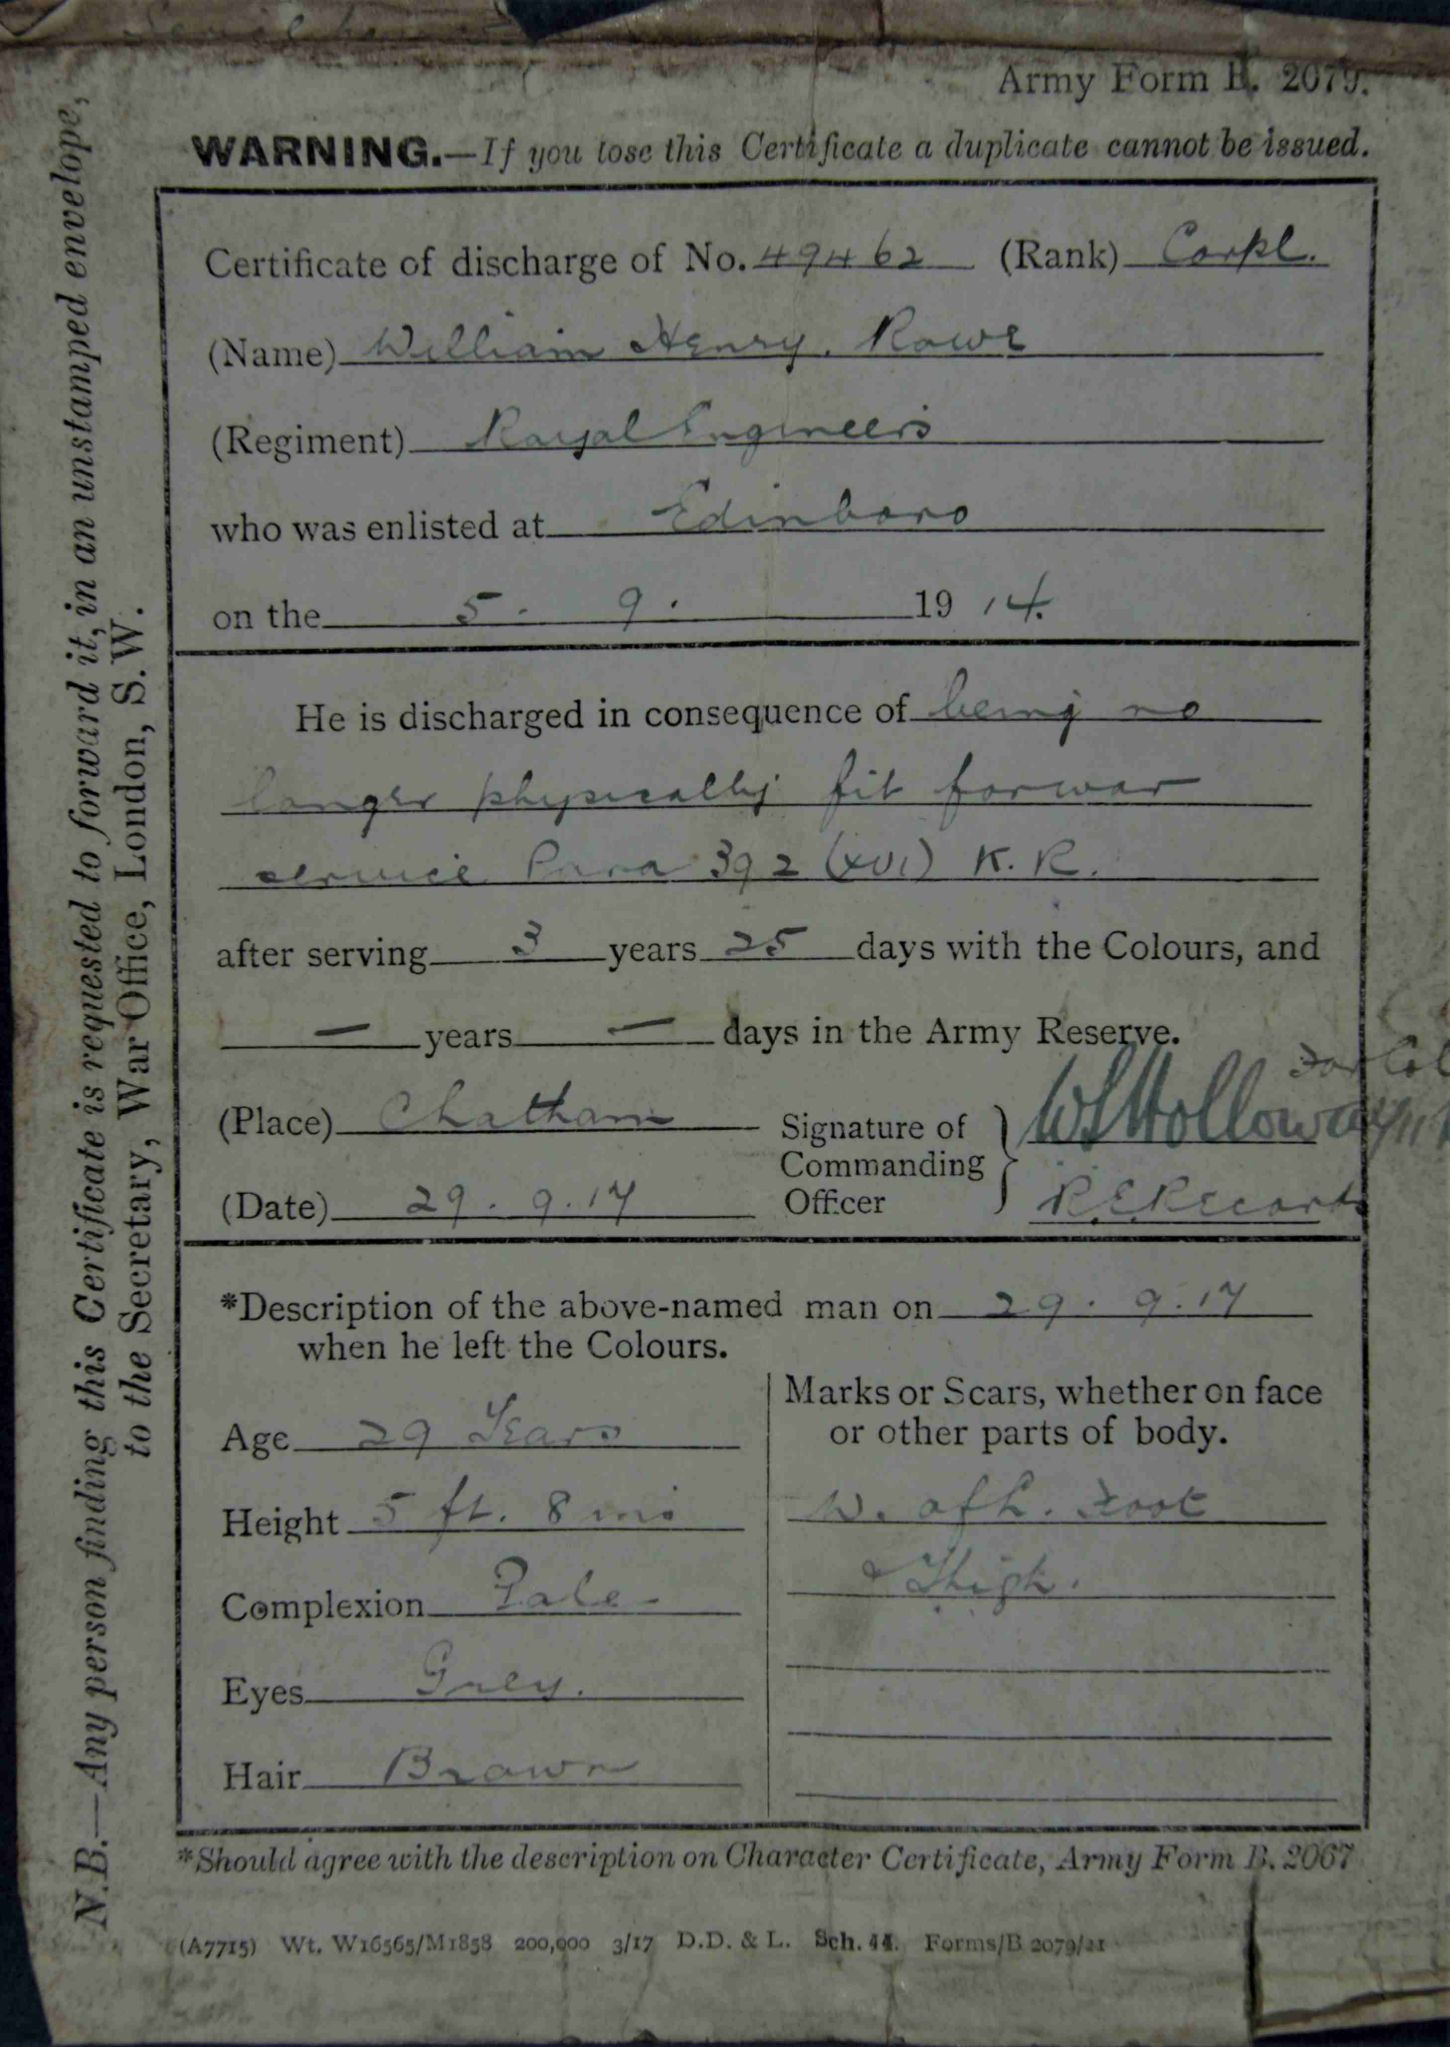 Army Form B. 2079.
WARNING.—If you lose this Certificate a duplicate cannot be issued.
Certificate of discharge of No. 49462 (Rank) Corpl.
(Name) William Henry. Rowe
(Regiment) Royal Engineers
who was enlisted at Edinboro
on the 5. 9. 1914.
He is discharged in consequence of being no
longer physically fit for war
service Para 392 (XVI) K.R.
after serving 3 years 25 days with the Colours, and
— years — days in the Army Reserve.
(Place) Chatham
Signature of Commanding Officer
For Col
WS Holloway
(Date) 29.9.17
R.E Records
*Description of the above-named man on 29.9.17
when he left the Colours.
Age 29 Years
Height 5 ft. 8 ins
Complexion Pale
Eyes Grey.
Hair Brown
Marks or Scars, whether on face
or other parts of body.
W. of L. Foot
& Thigh.
*Should agree with the description on Character Certificate, Army Form B. 2067
(A7715) Wt. W16565/M1858 200,000 3/17 D.D. & L. Sch. 44. Forms/B 2079/21
N.B.—Any person finding this Certificate is requested to forward it, in an unstamped envelope,
to the Secretary, War Office, London, S.W.